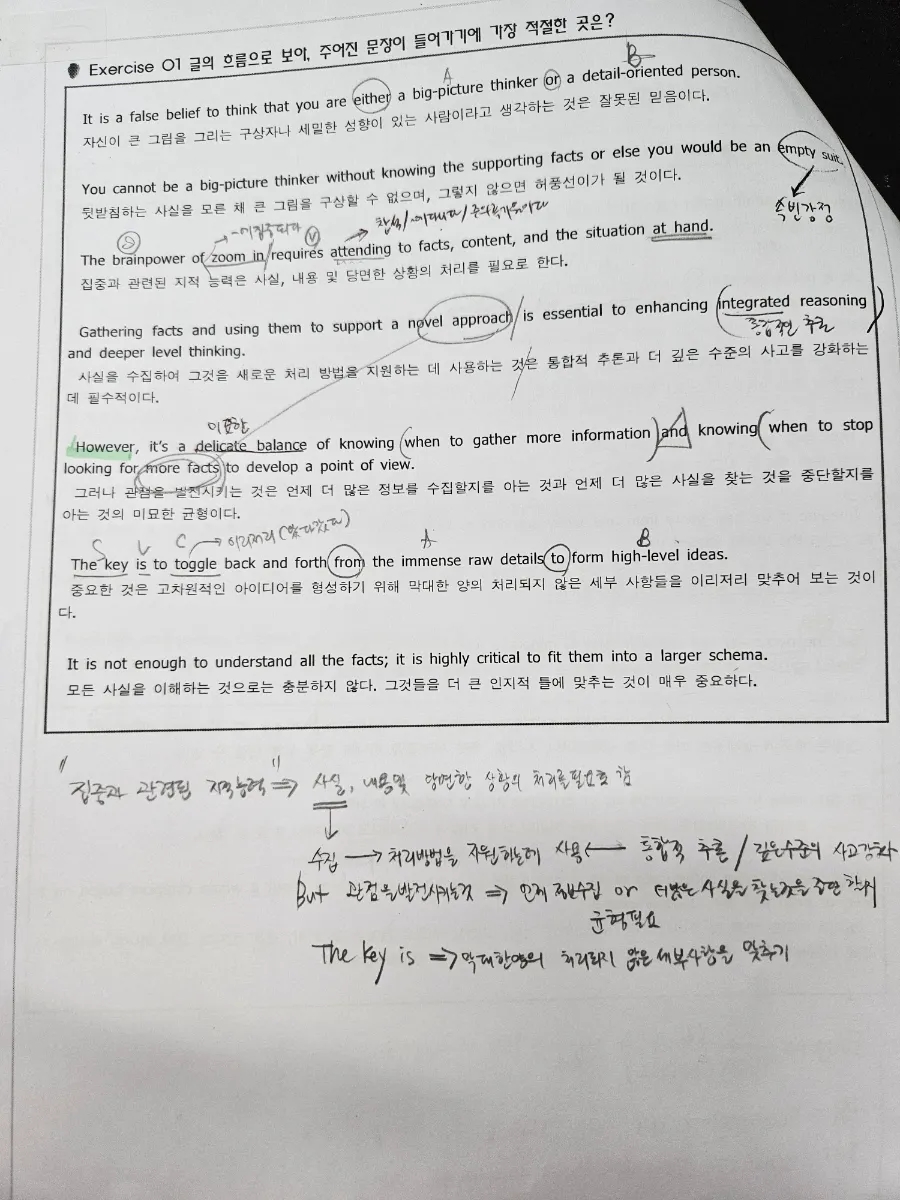 Exercise 01 글의 흐름으로 보아, 주어진 문장이 들어가기에 가장 적절한 곳은?
A B
It is a false belief to think that you are either a big-picture thinker or a detail-oriented person.
자신이 큰 그림을 그리는 구상자나 세밀한 성향이 있는 사람이라고 생각하는 것은 잘못된 믿음이다.
You cannot be a big-picture thinker without knowing the supporting facts or else you would be an empty suit.
뒷받침하는 사실을 모른 채 큰 그림을 구상할 수 없으며, 그렇지 않으면 허풍선이가 될 것이다.
속빈강정
S →~에 집중하다 V → 참석/~에다니다/주의를기울이다
The brainpower of zoom in requires attending to facts, content, and the situation at hand.
집중과 관련된 지적 능력은 사실, 내용 및 당면한 상황의 처리를 필요로 한다.
Gathering facts and using them to support a novel approach is essential to enhancing integrated reasoning
종합적인 추론
and deeper level thinking.
사실을 수집하여 그것을 새로운 처리 방법을 지원하는 데 사용하는 것은 통합적 추론과 더 깊은 수준의 사고를 강화하는
데 필수적이다.
미묘한
However, it's a delicate balance of knowing when to gather more information and knowing when to stop
looking for more facts to develop a point of view.
그러나 관점을 발전시키는 것은 언제 더 많은 정보를 수집할지를 아는 것과 언제 더 많은 사실을 찾는 것을 중단할지를
아는 것의 미묘한 균형이다.
S V C → 이리저리 (왔다갔다) A B
The key is to toggle back and forth from the immense raw details to form high-level ideas.
중요한 것은 고차원적인 아이디어를 형성하기 위해 막대한 양의 처리되지 않은 세부 사항들을 이리저리 맞추어 보는 것이
다.
It is not enough to understand all the facts; it is highly critical to fit them into a larger schema.
모든 사실을 이해하는 것으로는 충분하지 않다. 그것들을 더 큰 인지적 틀에 맞추는 것이 매우 중요하다.
"집중과 관련된 지적능력" ⇒ 사실, 내용및 당면한 상황의 처리를필요로 함
수집 → 처리방법을 지원하는데 사용 ← 통합적 추론 / 깊은수준의 사고강화
But 관점을발전시키는것 ⇒ 언제 정보수집 or 더많은 사실을 찾는것을 중단 할지
균형필요
The key is ⇒ 막대한양의 처리되지 않은 세부사항을 맞추기